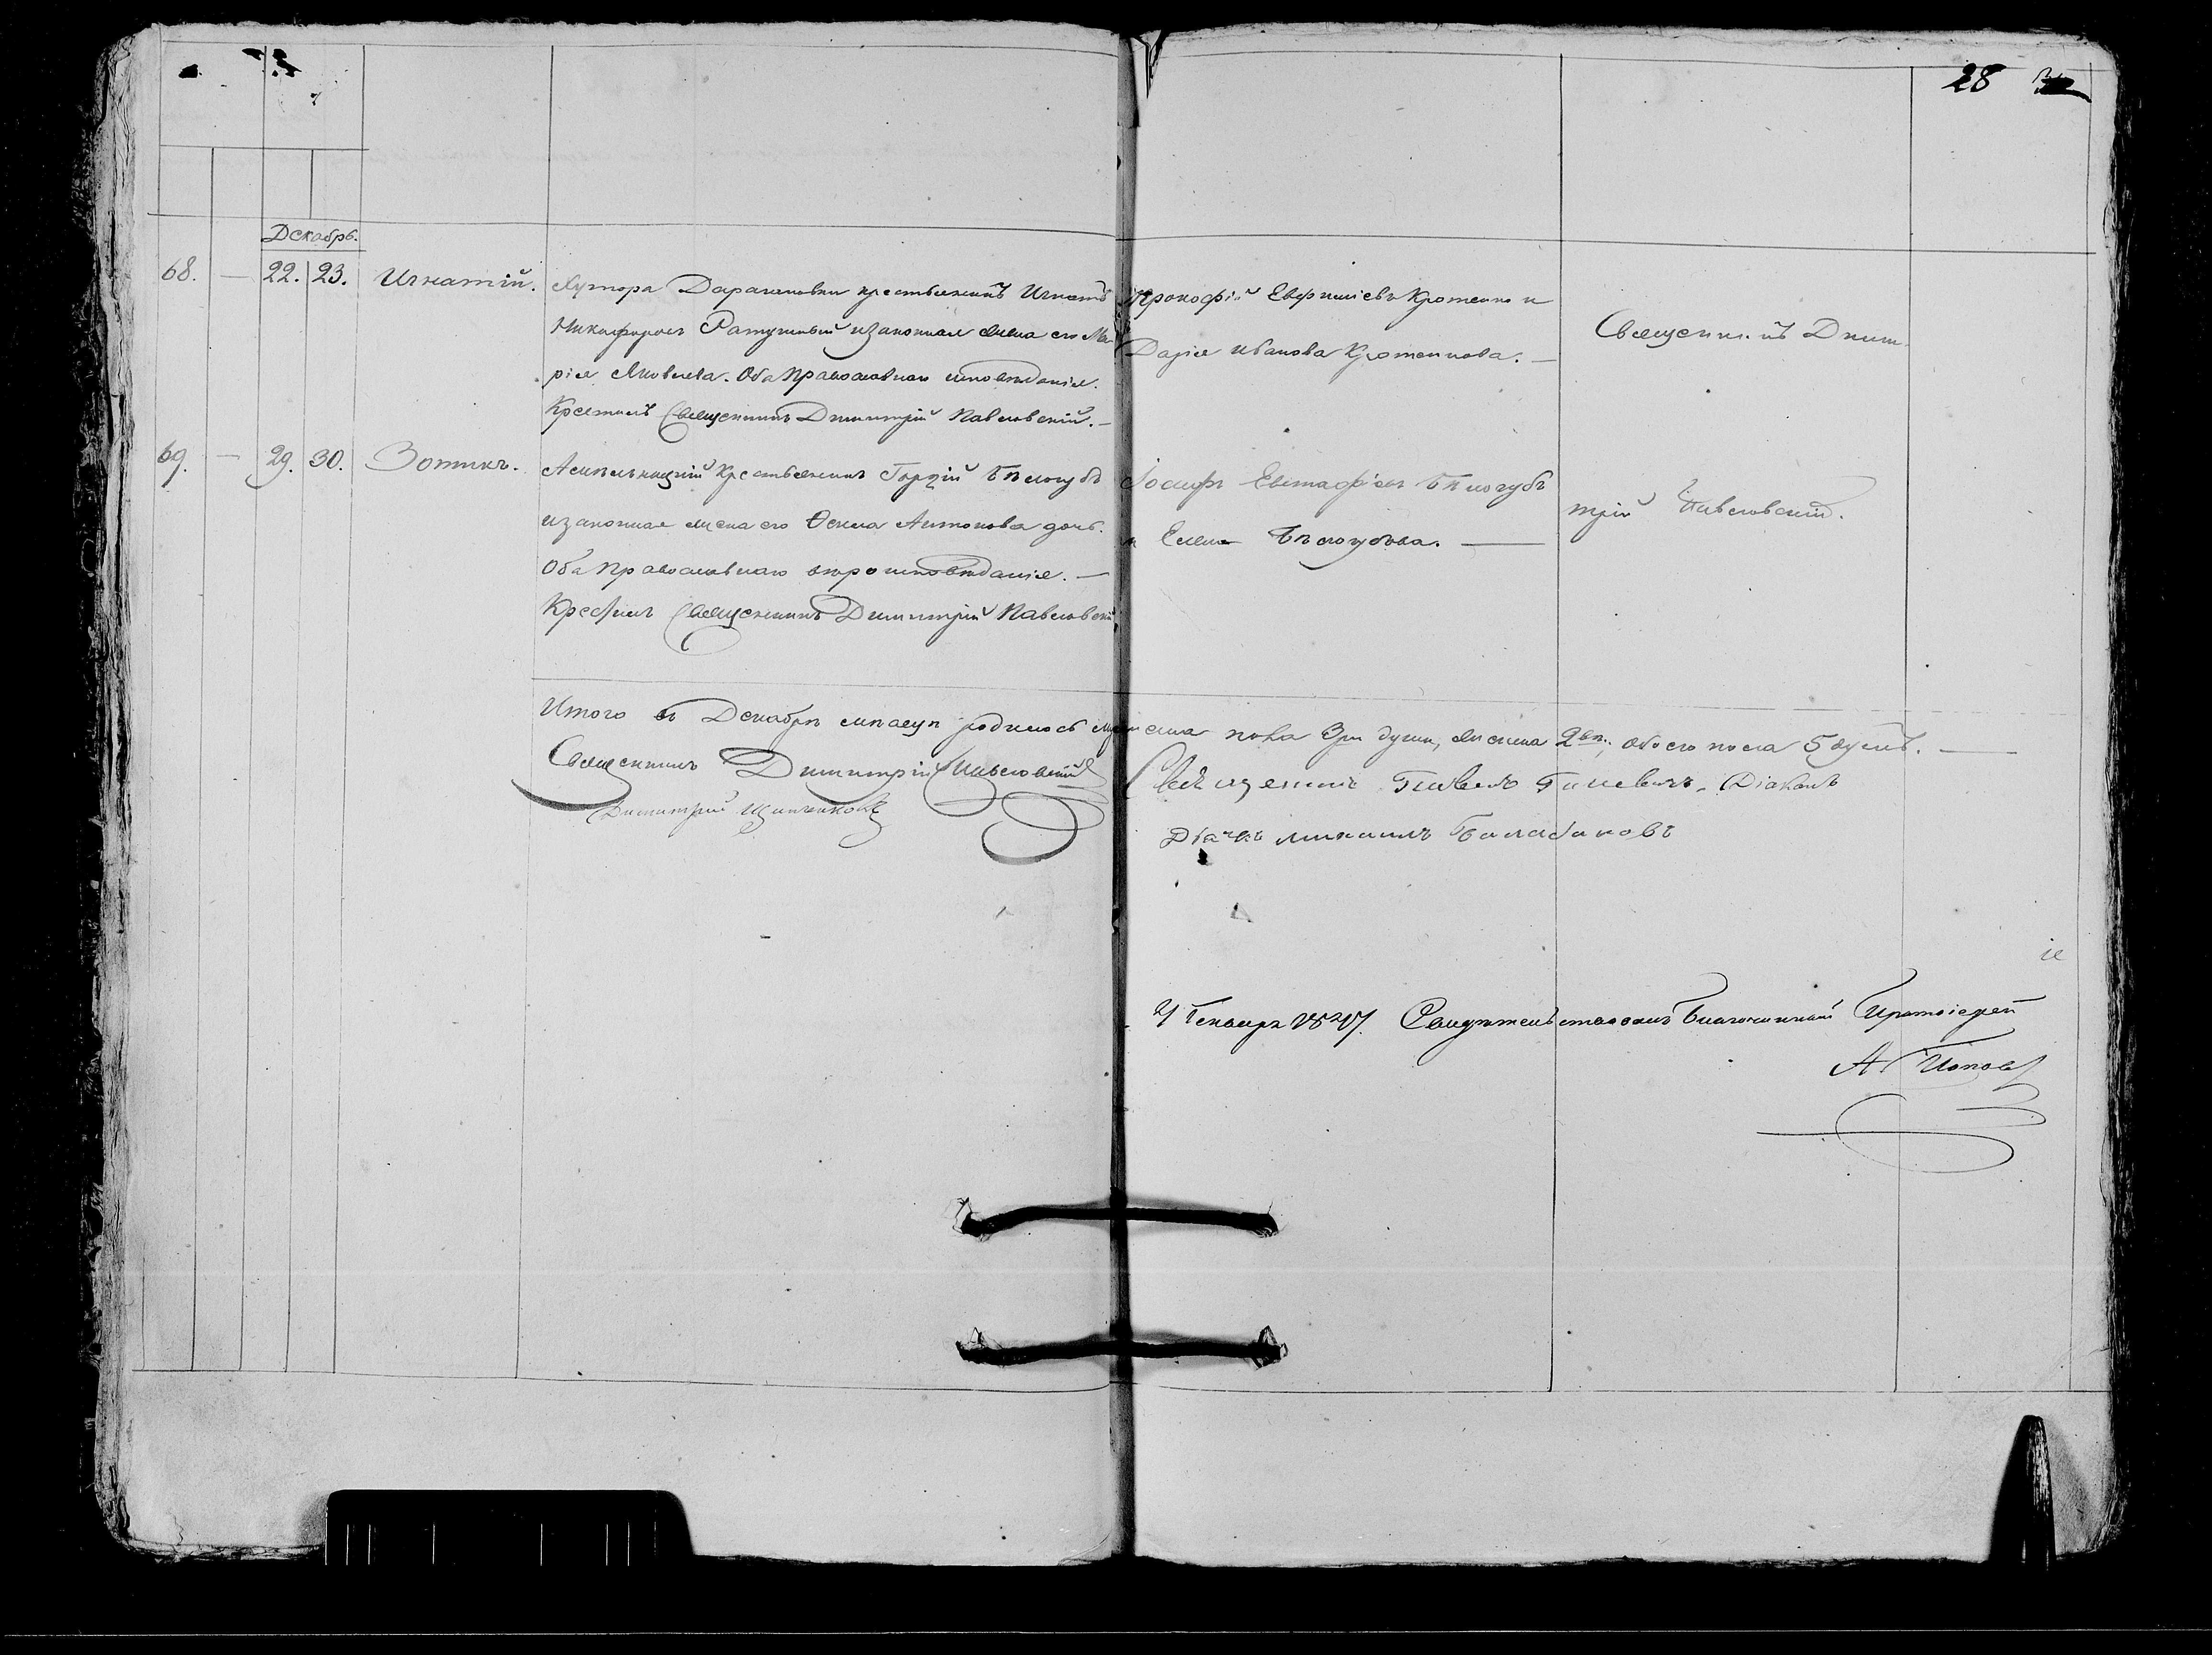 28
Декабрь.
68. — 22. 23. Игнатій.
Хутора Дарагановки крестьянинъ Игнатъ
Никифоровъ Ратушный изаконная жена его Ма-
рія Яковлева. Оба Православнаго исповѣданія.
Крестилъ Священникъ Димитрій Павловскій. —
Прокофій Евфиміевъ Кротенко и
Дарія Иванова Кротенкова. —
Священникъ Дими
69. — 29. 30. Зотикъ.
крестьянинъ Гордій Бѣлогубъ
изаконная жена его Ѳекла Антонова дочь.
Оба Православнаго вѣроисповѣданія. —
Крестилъ Священникъ Димитрій Павловскій
Іосифъ Евстафіевъ Бѣлогубъ
и Елена Бѣлогубова. —
трій Павловскій.
Итого въ Декабрѣ мѣсяцѣ родилось мужеска пола 3ри души, женска 2вѣ, обоего пола 5 душъ. —
Священникъ Димитрій Павловскій
Священникъ Павелъ Діаконъ
Димитрій
Дьячкъ Михаилъ Балабановъ
Генваря Свидѣтельствовалъ Благочинный Протоіерей
А Поповъ